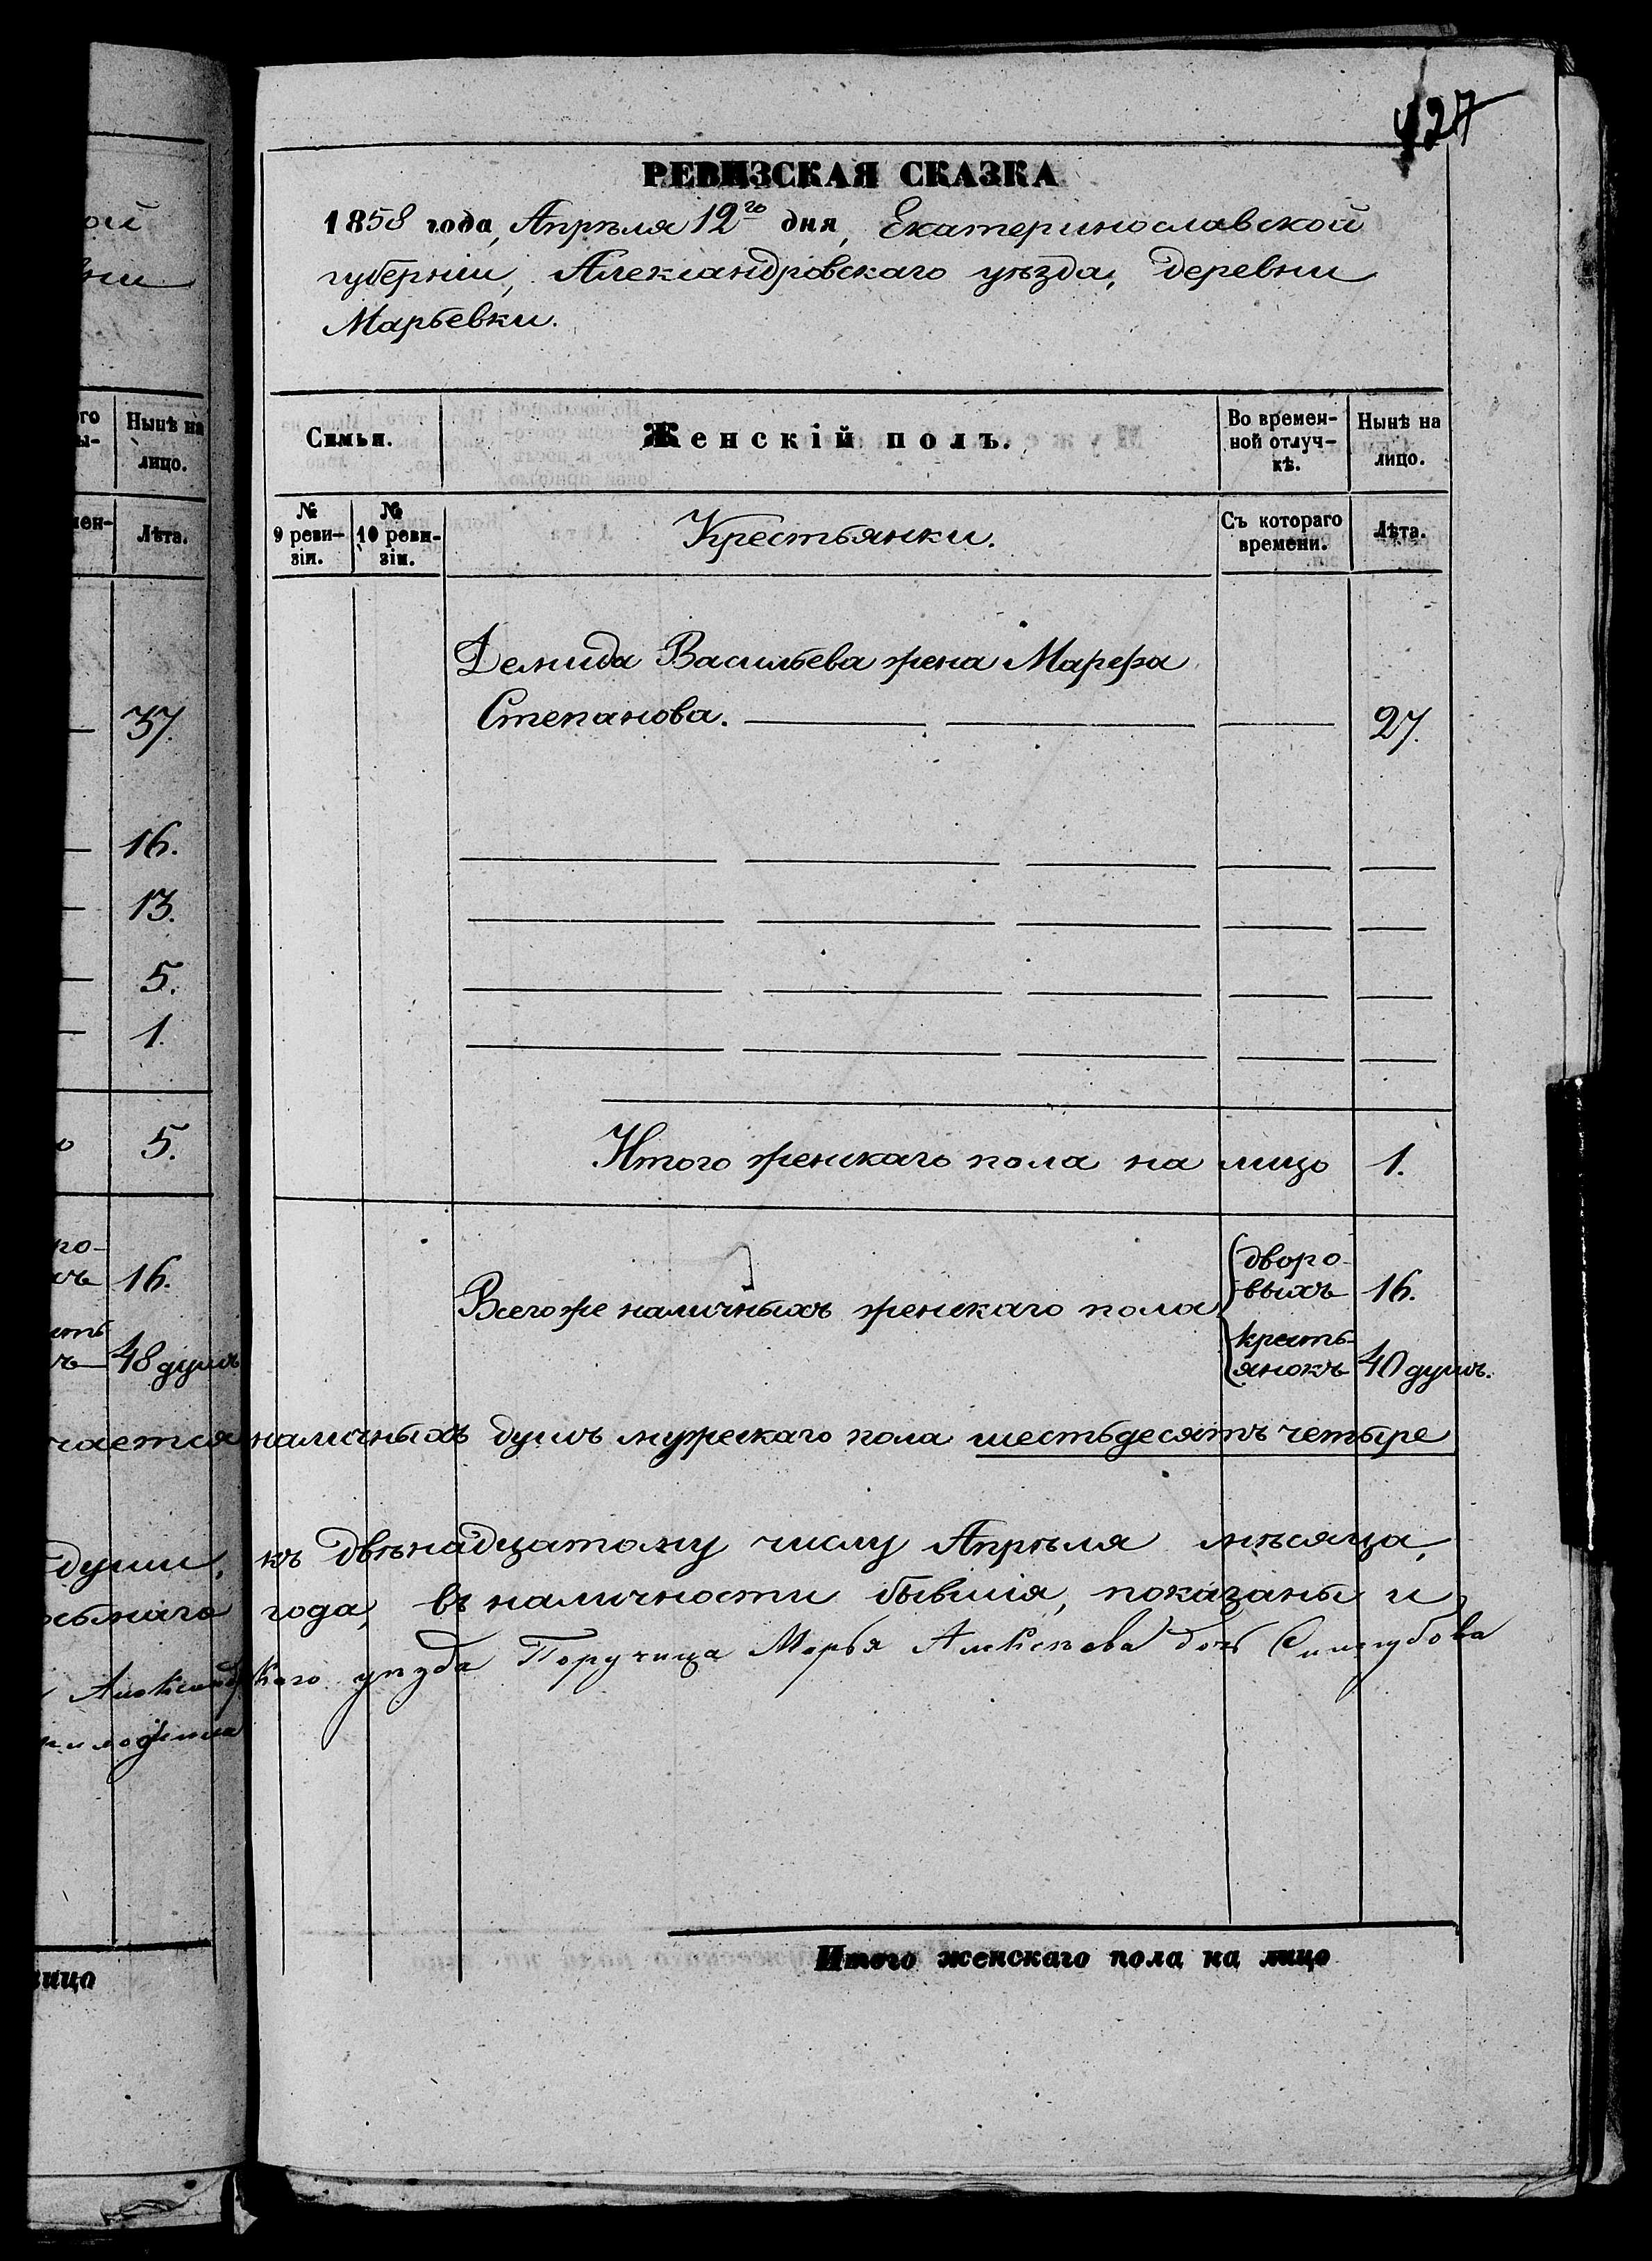 427
РЕВИЗСКАЯ СКАЗКА
1858 года, Апрѣля 12го дня, Екатеринославской
губерніи, Александровскаго уѣзда, деревни
Марьевки.
Семьи.
Женскій полъ.
Во времен-
ной отлуч-
кѣ.
Нынѣ на
лицо.
№
9 реви-
зіи.
№
10 реви-
зіи.
Крестьянки.
Съ котораго
времени.
Лѣта.
Демида Васильева жена Марфа
Степанова. 27.
Итого женскаго пола на лицо 1.
Всего же наличныхъ женскаго пола
дворо-
выхъ 16.
кресть-
янокъ 40 душъ.
наличныхъ душъ мужескаго пола шестьдесятъ четыре
къ двѣнадцатому числу Апрѣля мѣсяца,
года, въ наличности бывшія, показаны и
уѣзда Поручица Марья Алексѣева дочь
Итого женскаго пола на лицо
Нынѣ на
лицо.
Лѣта.
37.
16.
13.
5.
1.
5.
16.
48 душъ
души,